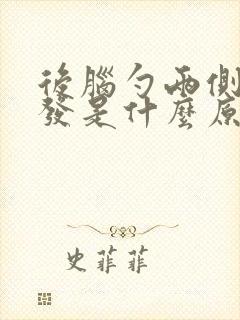 後腦勺兩側
發是什麼原
史菲菲